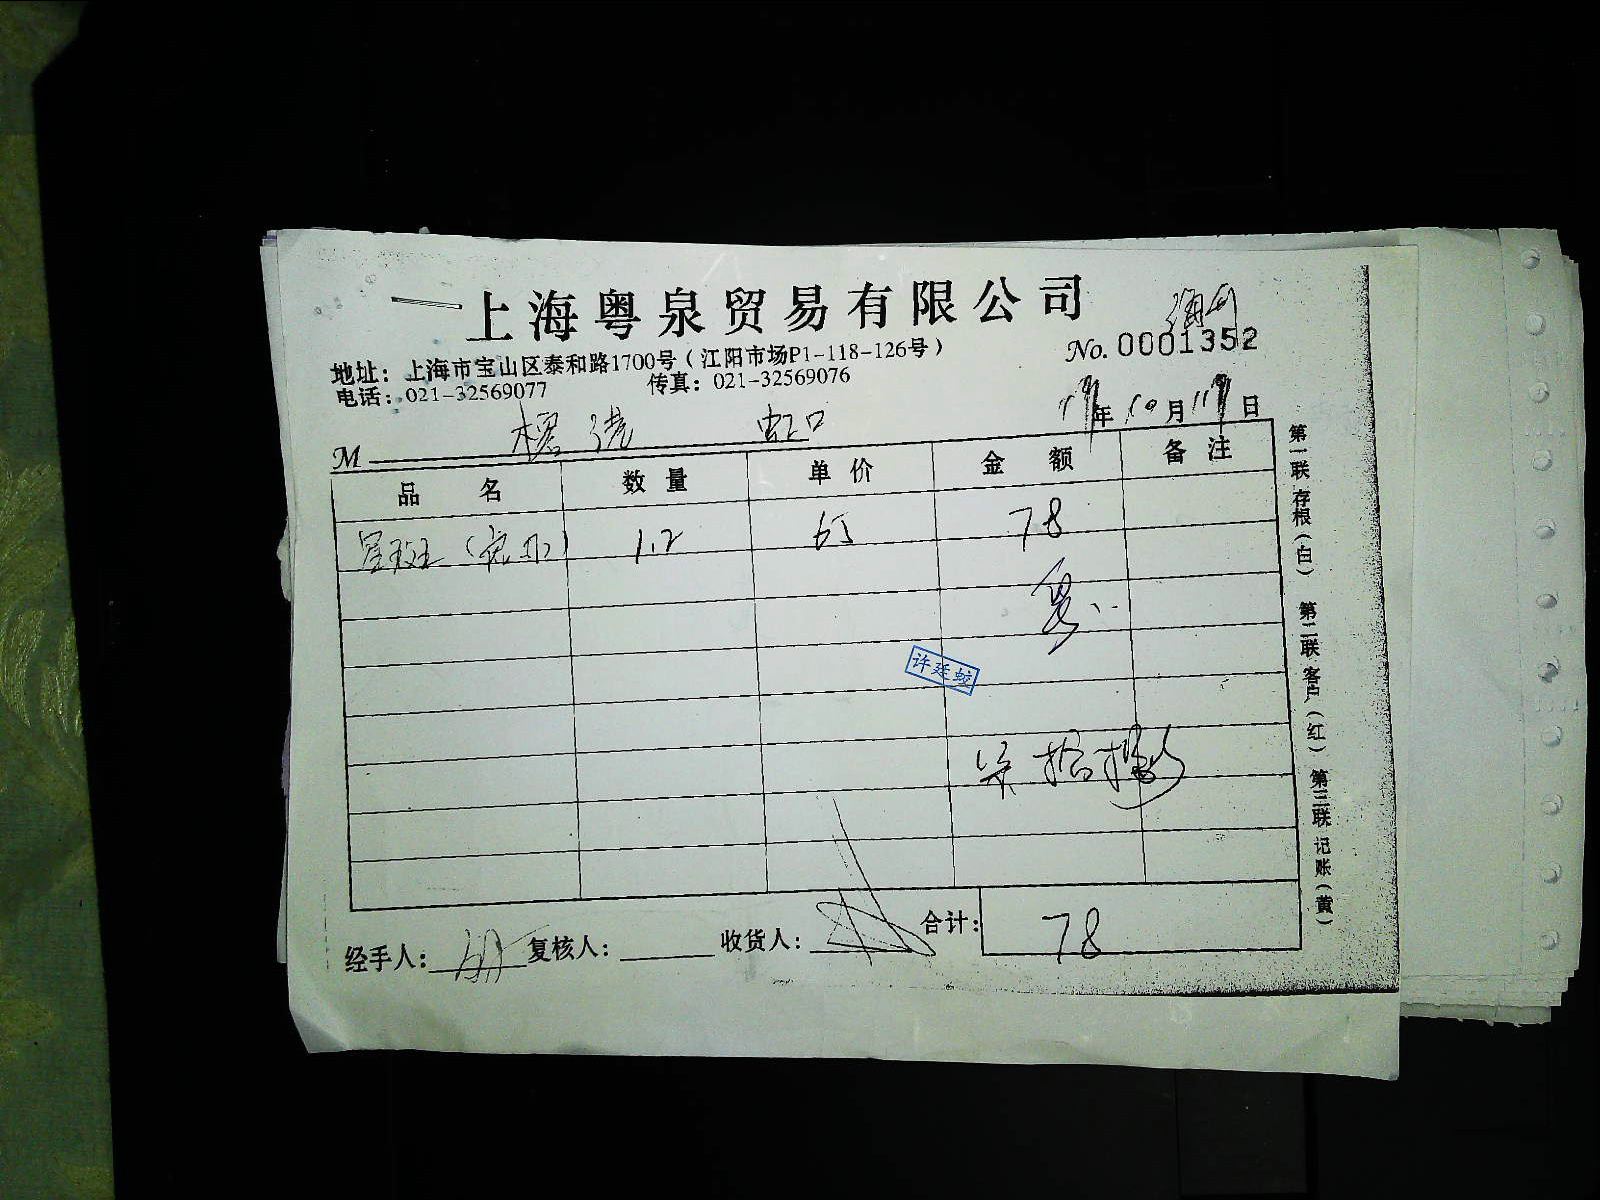 上海粤泉贸易有限公司
地址：上海市宝山区泰和路1700号（江阳市场P1-118-126号）
No. 0001352
电话：021-32569077 传真：021-32569076
17年10月17日
M 虹口
品名 数量 单价 金额 备注
星斑 1.2 65 78
许廷蛟
柒拾捌
经手人： 复核人： 收货人： 合计： 78
第一联 存根（白） 第二联 客户（红） 第三联 记账（黄）